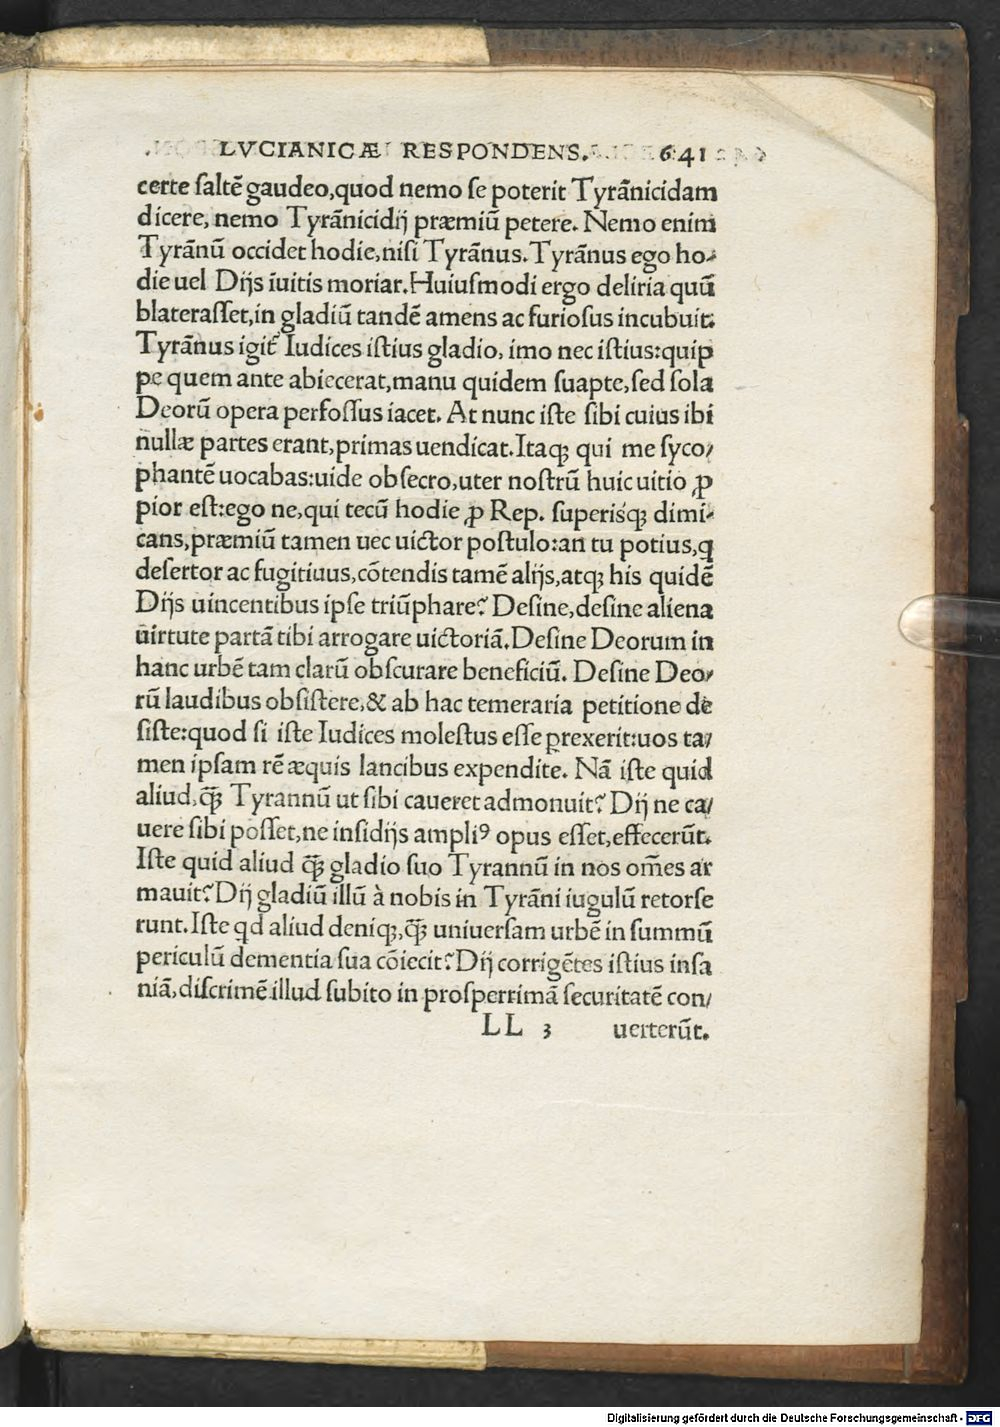 LVCIANICÆ RESPONDENS. 641
certe saltē gaudeo,quod nemo se poterit Tyrānicidam
dicere, nemo Tyrānicidij præmiū petere. Nemo enim
Tyrānū occidet hodie,nisi Tyrānus.Tyrānus ego ho⸗
die uel Dijs īuitis moriar.Huiusmodi ergo deliria quū
blaterasset,in gladiū tandē amens ac furiosus incubuit.
Tyrānus igit᷑ Iudices istius gladio, imo nec istius:quip
pe quem ante abiecerat,manu quidem suapte,sed sola
Deorū opera perfossus iacet. At nunc iste sibi cuius ibi
nullæ partes erant,primas uendicat.Itaq; qui me syco/
phantē uocabas:uide obsecro,uter nostrū huic uitio ꝓ
pior est:ego ne,qui tecū hodie ꝓ Rep. superisq; dimi⸗
cans,præmiū tamen uec uictor postulo:an tu potius,q
desertor ac fugitiuus,cōtendis tamē alijs,atq; his quidē
Dijs uincentibus ipse triūphare? Desine,desine aliena
uirtute partā tibi arrogare uictoriā.Desine Deorum in
hanc urbē tam clarū obscurare beneficiū. Desine Deo/
rū laudibus obsistere,& ab hac temeraria petitione de
siste:quod si iste Iudices molestus esse ꝑrexerit:uos ta/
men ipsam rē æquis lancibus expendite. Nā iste quid
aliud,q̄; Tyrannū ut sibi caueret admonuit? Dij ne ca/
uere sibi posset,ne insidijs ampliꝰ opus esset,effecerūt.
Iste quid aliud q̄; gladio suo Tyrannū in nos om̄es ar
mauit? Dij gladiū illū à nobis in Tyrāni iugulū retorse
runt.Iste qd aliud deniq;,q̄; uniuersam urbē in summū
periculū dementia sua cōiecit? Dij corrigētes istius insa
niā,discrimē illud subito in prosperrimā securitatē con/
LL 3 uerterūt.
Digitalisierung gefördert durch die Deutsche Forschungsgemeinschaft - DFG